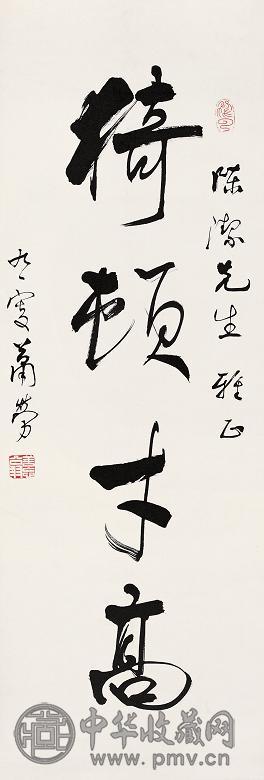 陳潔先生 雅正
猗頓才高
叟蕭勞
中华收藏网
www.pmv.cn